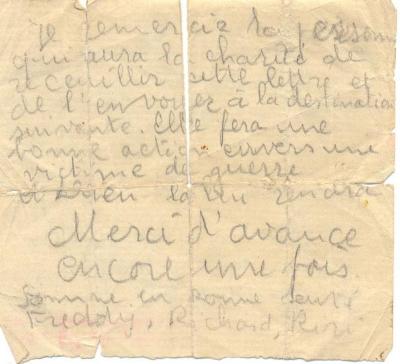 Je remercie la personne
qui aura la charité de
receuillir cette lettre et
de l'envoyer à la destination
suivante. Elle fera une
bonne action envers une
victime de guerre
et Dieu la lui rendra
Merci d'avance
encore une fois.
Somme en bonne santé
Freddy, Richard,